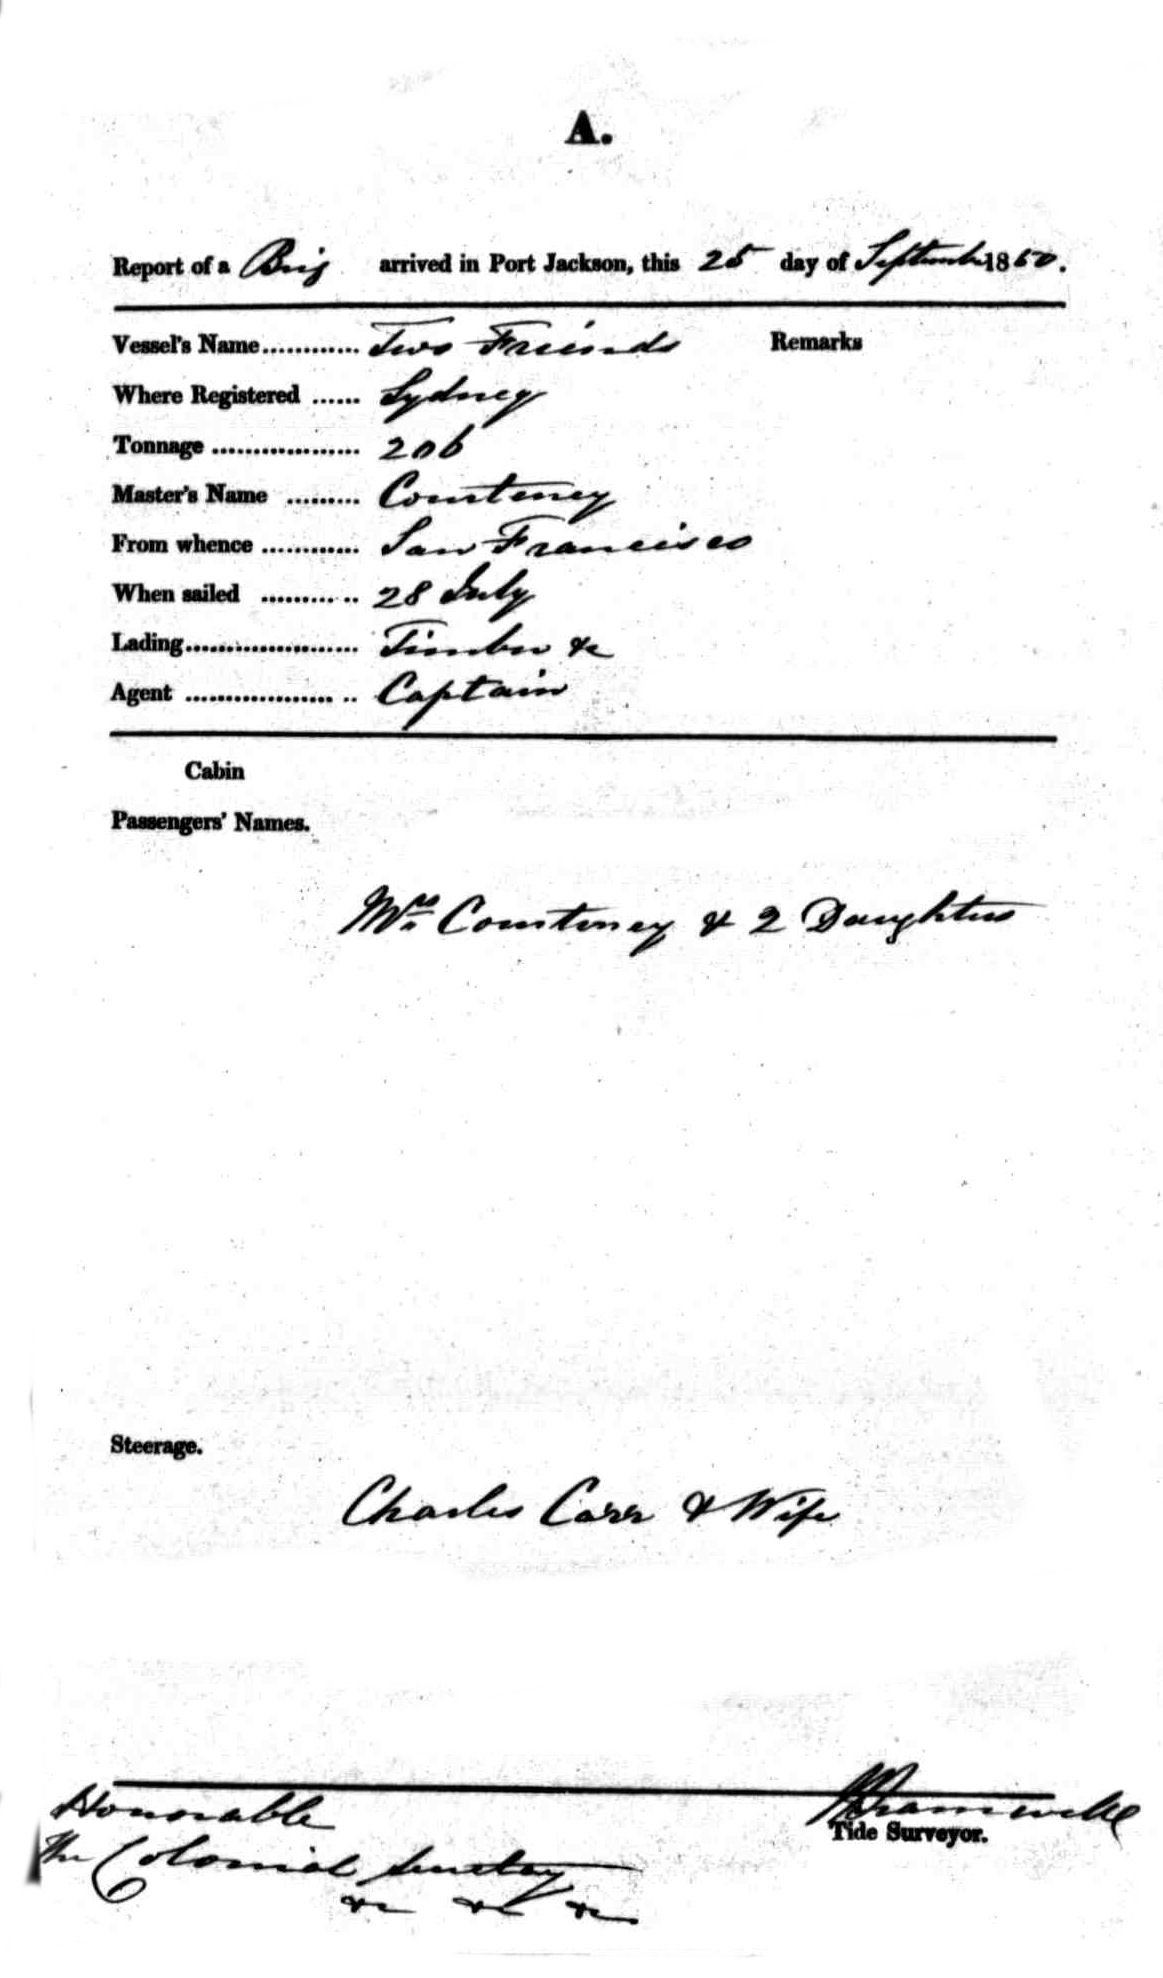 A.
Report of a Brig arrived in Port Jackson, this 25 day of September 1850.
Vessel's Name............ Two Friends Remarks
Where Registered ...... Sydney
Tonnage .................. 206
Master's Name ......... Courteney
From whence ............ San Francisco
When sailed ............ 28 July
Lading..................... Timber &c
Agent .................... Captain
Cabin
Passengers' Names.
Mrs Courteney & 2 Daughters
Steerage.
Charles Carr & Wife
Honorable
The Colonial Secretary
Tide Surveyor.
&c &c &c